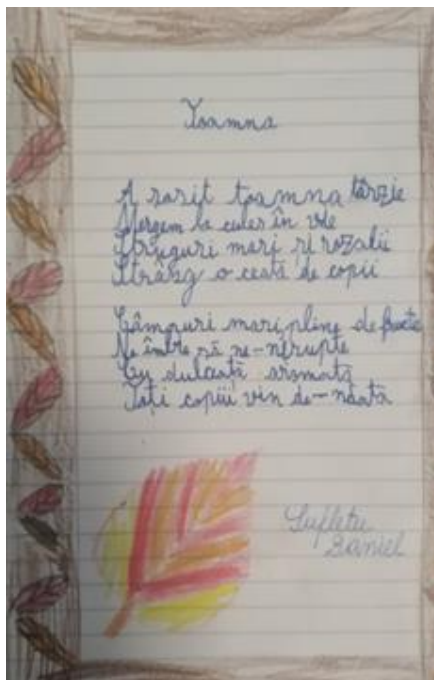 Toamna
A sosit toamna târzie
Mergem la cules în vie
Struguri mari și rozalii
Strâng o ceată de copii
Câmpuri mari pline de fructe
Ne îmbie să ne-nfrupte
Cu dulceață aromată
Toți copiii vin de-ndată
Sufletu
Daniel